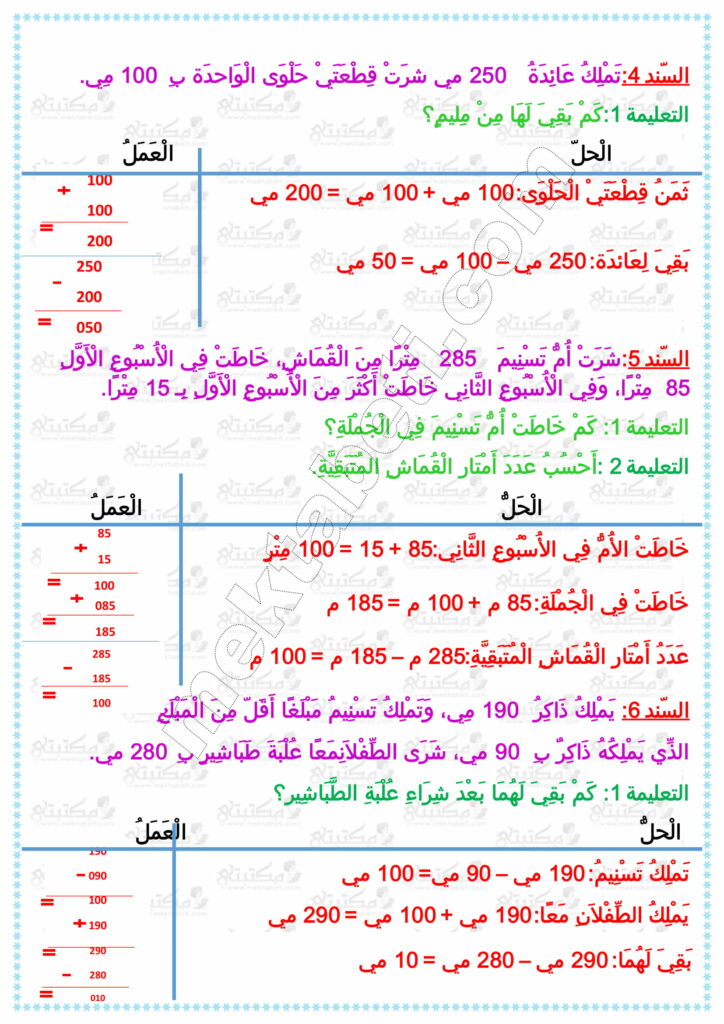 السّند 4:تَمْلِكُ عَائِدَةُ 250 مي شرَتْ قِطْعَتَيْ حَلْوَى الْوَاحدَة بِ 100 مِي.
التعليمة 1:كَمْ بَقِيَ لَهَا مِنْ مِليمٍ؟
الْحلّ
الْعَمَلُ
ثَمَنُ قِطْعَتَيْ الْحَلْوَى:100 مي + 100 مي = 200 مي
بَقِيَ لِعَائدَة:250 مي – 100 مي = 50 مي
100
+
100
=
200
250
-
200
=
050
السّند 5:شَرَتْ أُمُّ تَسْنِيمَ 285 مِتْرًا مِنَ الْقُمَاشِ، خَاطَتْ فِي الأُسْبُوعِ الْأَوَّلِ
85 مِتْرًا، وَفِي الْأُسْبُوعِ الثَّانِي خَاطَتْ أَكْثَرَ مِنَ الْأُسْبُوعِ الْأَوَّلِ بِـ 15 مِتْرًا.
التعليمة 1: كَمْ خَاطَتْ أُمُّ تَسْنِيمَ فِي الْجُمْلَةِ؟
التعليمة 2 :أَحْسُبُ عَدَدَ أَمْتَار الْقُمَاشِ المُتَبَقِيَّةِ.
الْحَلُّ
الْعَمَلُ
خَاطَتْ الأُمُّ فِي الأُسْبُوعِ الثَّانِي:85 + 15 = 100 مِتْر
خَاطَتْ فِي الْجُمْلَةِ:85 م + 100 م = 185 م
عَدَدُ أَمْتَار الْقُمَاشِ الْمُتَبَقِيَّةِ:285 م – 185 م = 100 م
85
+
15
=
100
+
085
=
185
285
-
185
=
100
السّند 6: يَمْلِكُ ذَاكِرُ 190 مِي، وَتَمْلِكُ تَسْنِيمُ مَبْلَغًا أَقَلّ مِنَ الْمَبْلَغِ
الذِّي يَمْلِكُهُ ذَاكِرٌ بِ 90 مي، شَرَى الطِّفْلاَنِمَعًا عُلْبَةَ طَبَاشِير بِ 280 مي.
التعليمة 1: كَمْ بَقِيَ لَهُمَا بَعْدَ شِرَاءِ عُلْبَةِ الطَّبَاشِير؟
الْحلُّ
الْعَمَلُ
تَمْلِكُ تَسْنِيمُ:190 مي – 90 مي= 100 مي
يَمْلِكُ الطِّفْلاَنِ مَعًا:190 مي + 100 مي = 290 مي
بَقِيَ لَهُمَا:290 مي – 280 مي = 10 مي
190
-
090
=
100
+
190
=
290
-
280
=
010
mektabeti.com